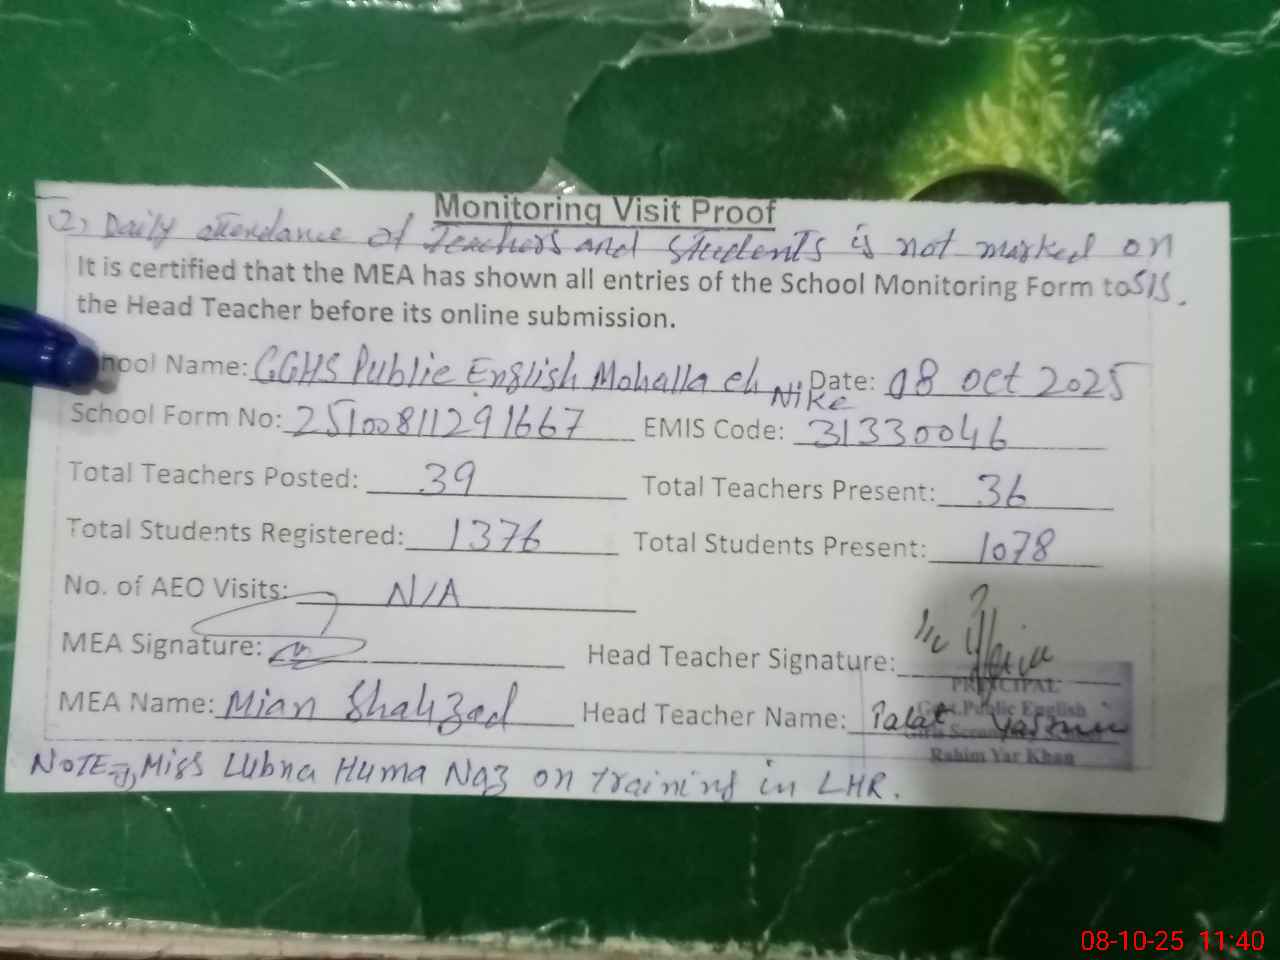 Monitoring Visit Proof
2, Daily attendance of Teachers and Students is not marked on SIS.
It is certified that the MEA has shown all entries of the School Monitoring Form to
the Head Teacher before its online submission.
hool Name: GGHS Public English Mohalla ch Nike Date: 08 Oct 2025
School Form No: 25100811291667 EMIS Code: 31330046
Total Teachers Posted: 39 Total Teachers Present: 36
Total Students Registered: 1376 Total Students Present: 1078
No. of AEO Visits: N/A
MEA Signature: Head Teacher Signature:
PRINCIPAL
MEA Name: Mian Shahzad Head Teacher Name: Palat Yasmin
Govt. Public English
Girls Secon
Rahim Yar Khan
NOTE 1, Miss Lubna Huma Naz on training in LHR.
08-10-25 11:40